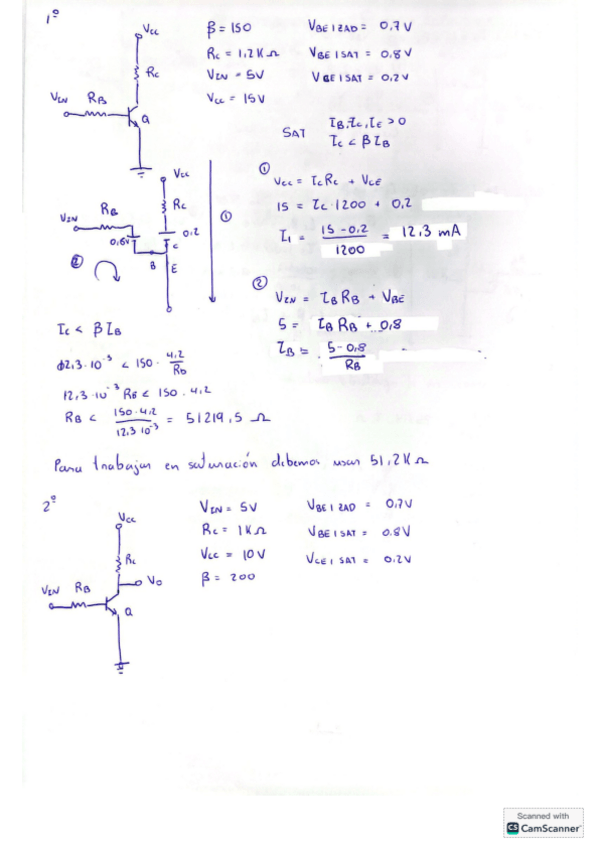 1º
Vcc
Rc
VIN RB
Q
β = 150
Rc = 1,2KΩ
VIN = 5V
Vcc = 15V
VBE|ZAD = 0,7V
VBE|SAT = 0,8V
VBE|SAT = 0,2V
SAT
IB, Ic, IE > 0
Ic < βIB
Vcc
RB
Rc
VIN
0,2
C
B E
①
②
① Vcc = IcRc + VCE
15 = Ic · 1200 + 0,2
I1 = 15 - 0,2 / 1200 = 12,3 mA
② VIN = IBRB + VBE
5 = IBRB + 0,8
IB = 5 - 0,8 / RB
Ic < βIB
12,3 · 10⁻³ < 150 · 4,2 / RB
12,3 · 10⁻³ RB < 150 · 4,2
RB < 150 · 4,2 / 12,3 10⁻³ = 51219,5 Ω
Para trabajar en saturación debemos usar 51,2KΩ
2º
Vcc
Rc
Vo
VIN RB
Q
VIN = 5V
Rc = 1KΩ
Vcc = 10V
β = 200
VBE|ZAD = 0,7V
VBE|SAT = 0.8V
VCE|SAT = 0.2V
Scanned with
CS CamScanner